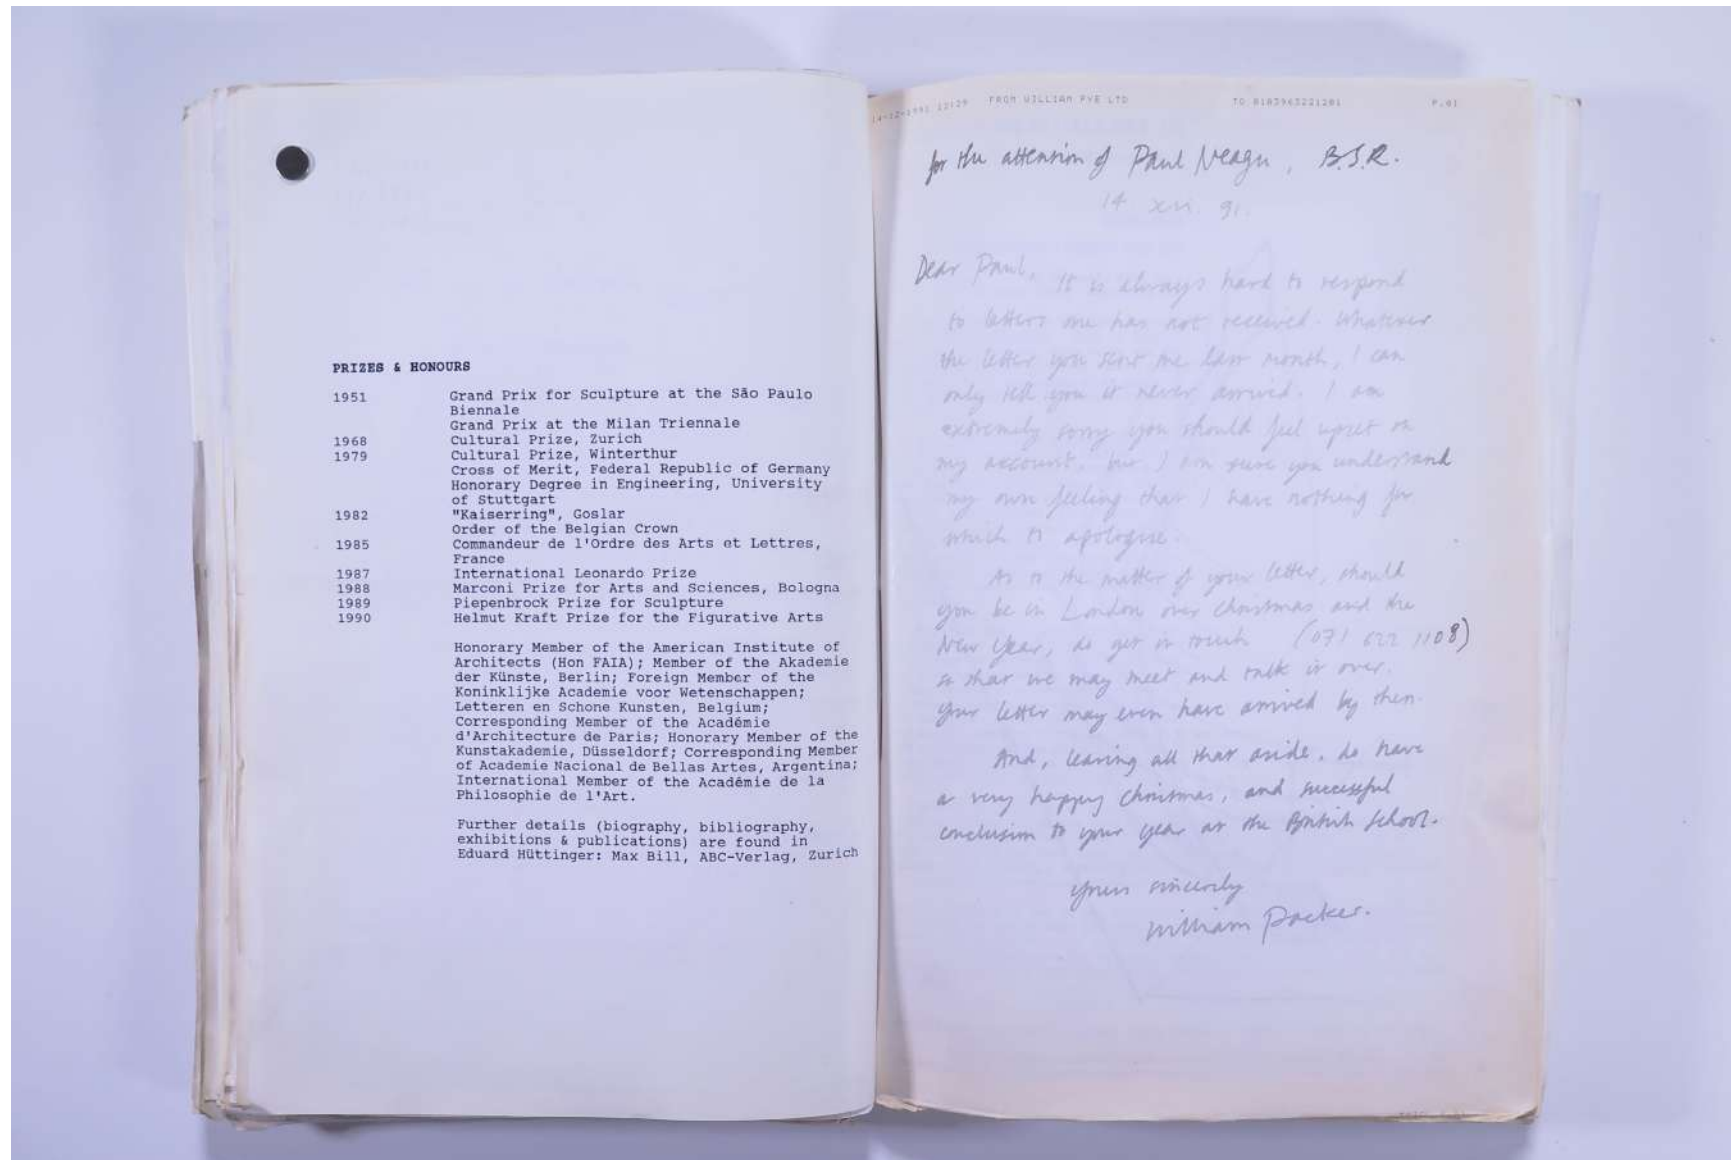 PRIZES & HONOURS
1951 Grand Prix for Sculpture at the São Paulo
Biennale
Grand Prix at the Milan Triennale
1968 Cultural Prize, Zurich
1979 Cultural Prize, Winterthur
Cross of Merit, Federal Republic of Germany
Honorary Degree in Engineering, University
of Stuttgart
1982 "Kaiserring", Goslar
Order of the Belgian Crown
1985 Commandeur de l'Ordre des Arts et Lettres,
France
1987 International Leonardo Prize
1988 Marconi Prize for Arts and Sciences, Bologna
1989 Piepenbrock Prize for Sculpture
1990 Helmut Kraft Prize for the Figurative Arts
Honorary Member of the American Institute of
Architects (Hon FAIA); Member of the Akademie
der Künste, Berlin; Foreign Member of the
Koninklijke Academie voor Wetenschappen;
Letteren en Schone Kunsten, Belgium;
Corresponding Member of the Académie
d'Architecture de Paris; Honorary Member of the
Kunstakademie, Düsseldorf; Corresponding Member
of Academie Nacional de Bellas Artes, Argentina;
International Member of the Académie de la
Philosophie de l'Art.
Further details (biography, bibliography,
exhibitions & publications) are found in
Eduard Hüttinger: Max Bill, ABC-Verlag, Zurich
14-12-1991 12:29 FROM WILLIAM PYE LTD TO 0103963221201 P.01
for the attention of Paul Neagu, B.S.R.
14 xii. 91.
Dear Paul,
It is always hard to respond
to letters one has not received. Whatever
the letter you sent me last month, I can
only tell you it never arrived. I am
extremely sorry you should feel upset on
my account, but I am sure you understand
my own feeling that I have nothing for
which to apologise.
As to the matter of your letter, should
you be in London over Christmas and the
New Year, do get in touch (071 622 1108)
so that we may meet and talk it over.
Your letter may even have arrived by then.
And, leaving all that aside, do have
a very happy Christmas, and successful
conclusion to your year at the British School.
Yours sincerely
William Packer.